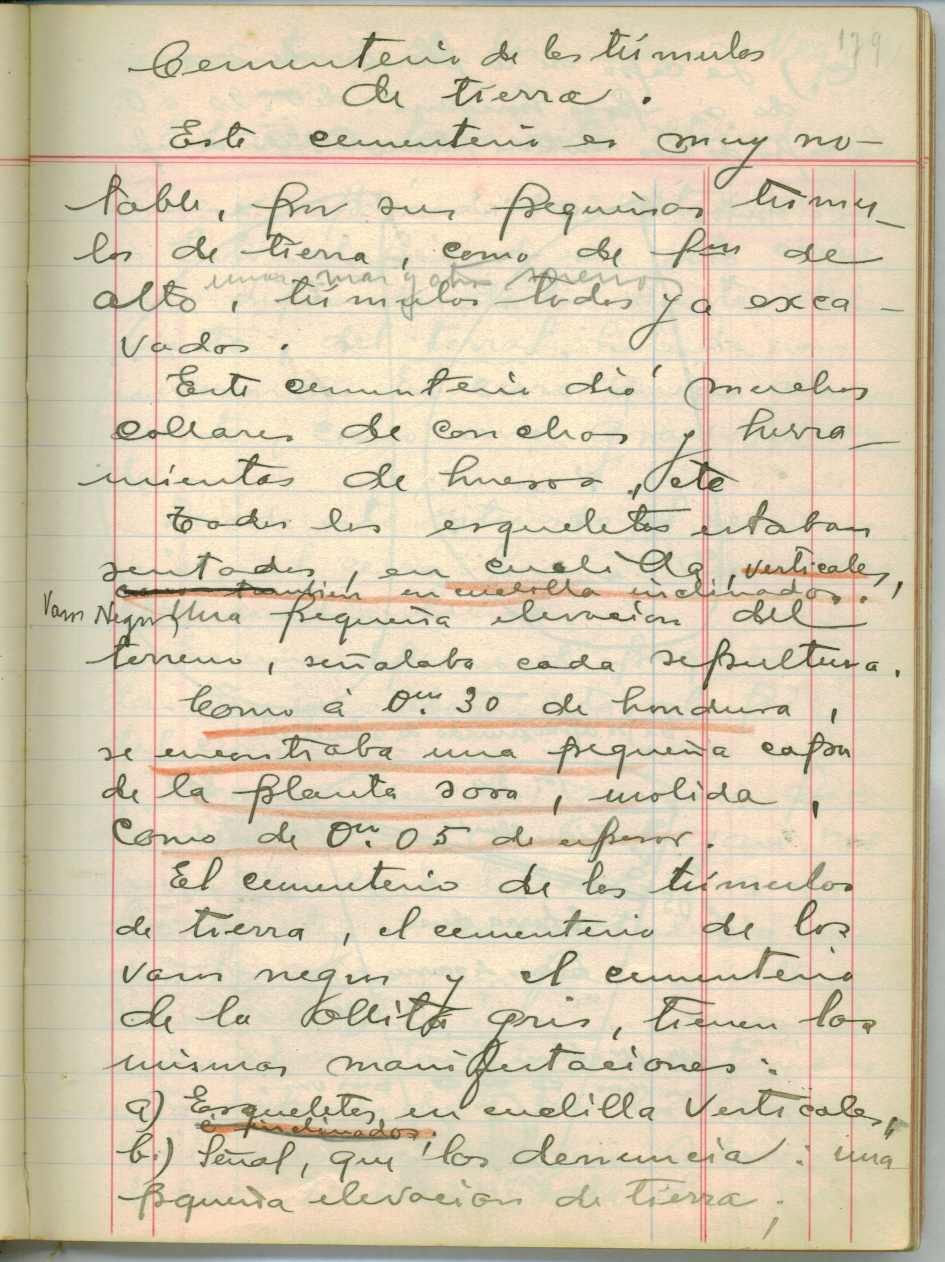 179
Cementerio de los túmulos
de tierra.
Este cementerio es muy no-
table, por sus pequeños túmu-
los de tierra, como de 1m de
unos mas y otros menos
alto, túmulos todos ya exca-
vados.
Este cementerio dió muchos
collares de conchas y herra-
mientas de huesos, etc
Todos los esqueletos estaban
sentados, en cuclilla, verticales,
como tambien en cuclilla inclinados.
Vasos Negros) Una pequeña elevacion del
terreno, señalaba cada sepultura.
Como á 0m. 30 de hondura,
se encontraba una pequeña capa
de la planta sora, molida,
como de 0m. 05 de espesor.
El cementerio de los túmulos
de tierra, el cementerio de los
vasos negros y el cementerio
de la ollita gris, tienen las
mismas manifestaciones:
a) Esqueletos en cuclilla verticales,
é inclinados;
b.) Señal, que los denuncia: una
pequeña elevacion de tierra;